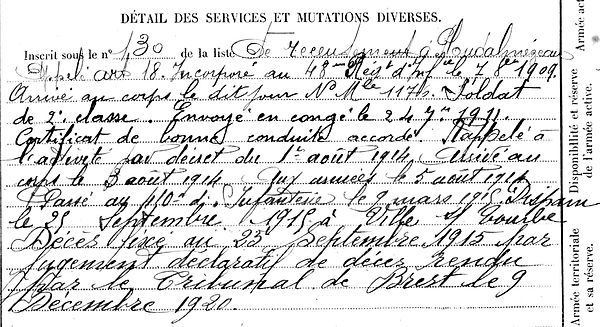 DÉTAIL DES SERVICES ET MUTATIONS DIVERSES.
Inscrit sous le n° 130 de la liste De recensement de Ploudalmézeau
Appelé art 18. Incorporé au 48me Régt d'Inf le 7 8bre 1909.
Arrivé au corps le dit jour N° Mle 1174. Soldat
de 2e classe. Envoyé en congé le 24 7bre 1911.
Certificat de bonne conduite accordé. Rappelé à
l'activité par décret du 1er août 1914, arrivé au
corps le 3 août 1914. Aux armées le 5 août 1914
Passé au d'Infanterie le 9 mars 1915. Disparu
le 25 Septembre 1915 à Ville s/ Tourbe
Décès fixé au 25 Septembre 1915 par
jugement déclaratif de décès rendu
par le Tribunal de Brest le 9
Décembre 1920.
Armée act
Disponibilité et réserve
de l'armée active.
Armée territoriale
et sa réserve.